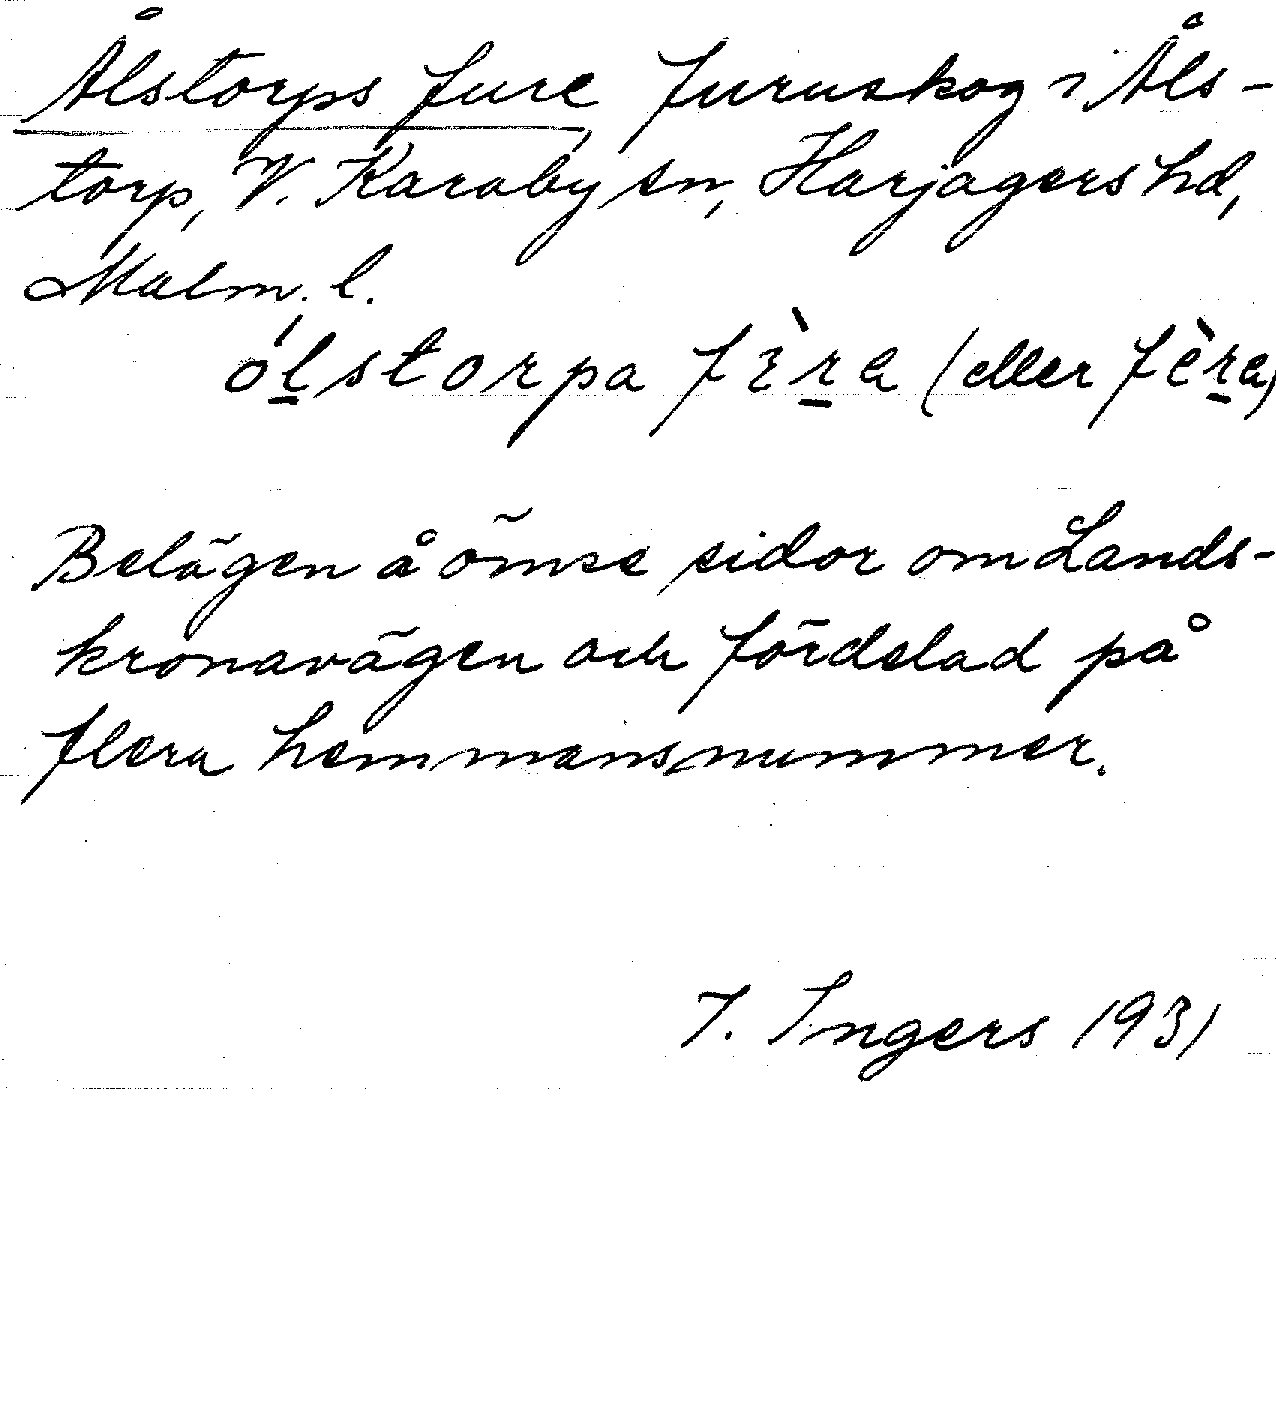 Ålstorps fure furuskog i Åls-
torp, V. Karaby sn, Harjagers hd,
Malm. l.
ólstorpa fɛ̀ra (eller fèra)
Belägen å ömse sidor om Lands-
kronavägen och fördelad på
flera hemmansnummer.
I. Ingers 1931